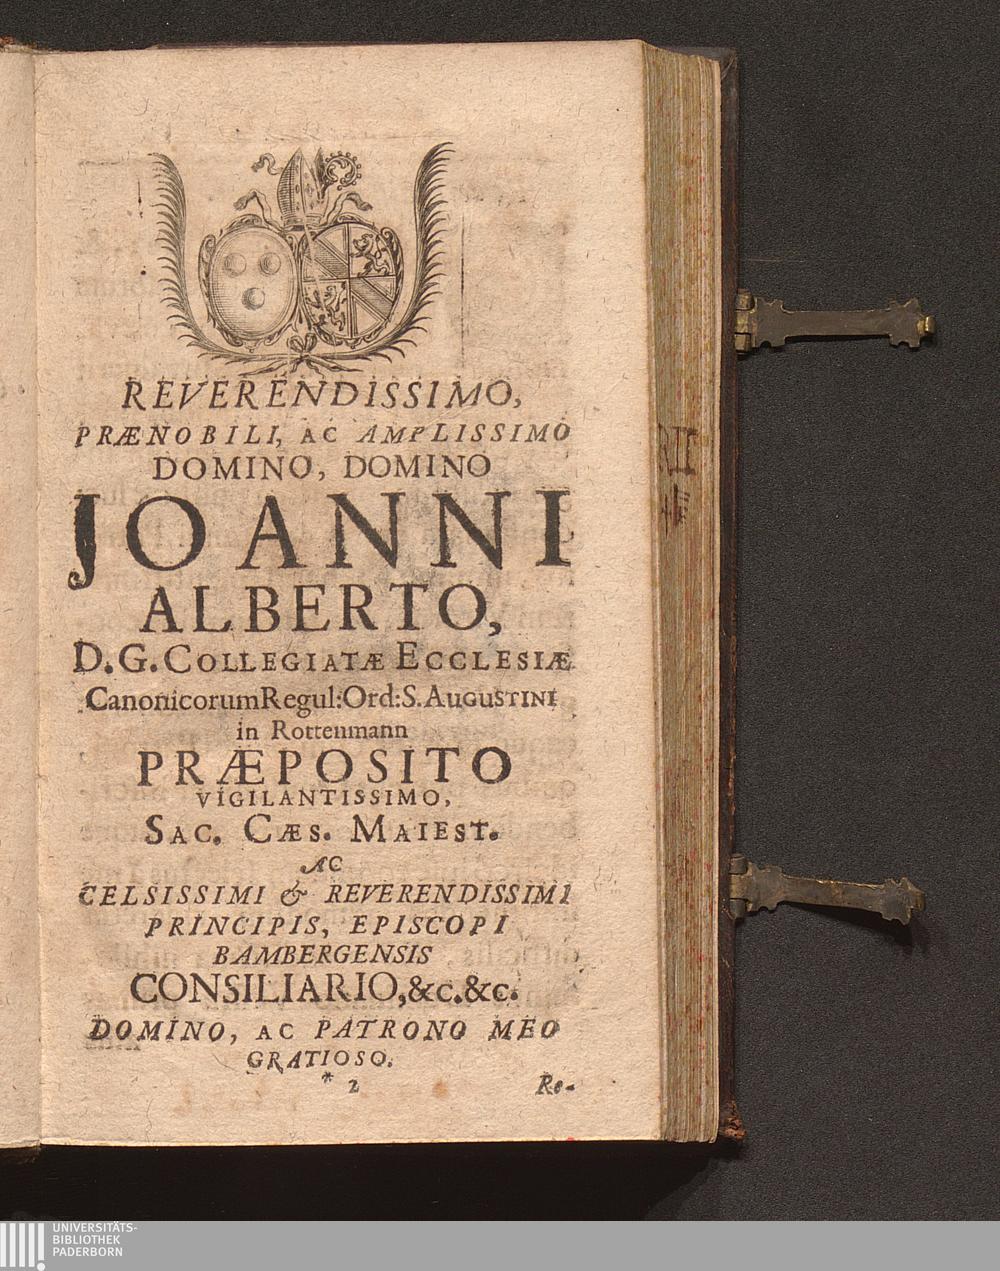 REVERENDISSIMO,
PRÆNOBILI, AC AMPLISSIMO
DOMINO, DOMINO
JOANNI
ALBERTO,
D.G. COLLEGIATÆ ECCLESIÆ
Canonicorum Regul: Ord: S. AUGUSTINI
in Rottenmann
PRÆPOSITO
VIGILANTISSIMO,
SAC. CÆS. MAIEST.
AC
CELSISSIMI & REVERENDISSIMI
PRINCIPIS, EPISCOPI
BAMBERGENSIS
CONSILIARIO, &c. &c.
DOMINO, AC PATRONO MEO
GRATIOSO.
* 2 Re-
UNIVERSITÄTS-
BIBLIOTHEK
PADERBORN